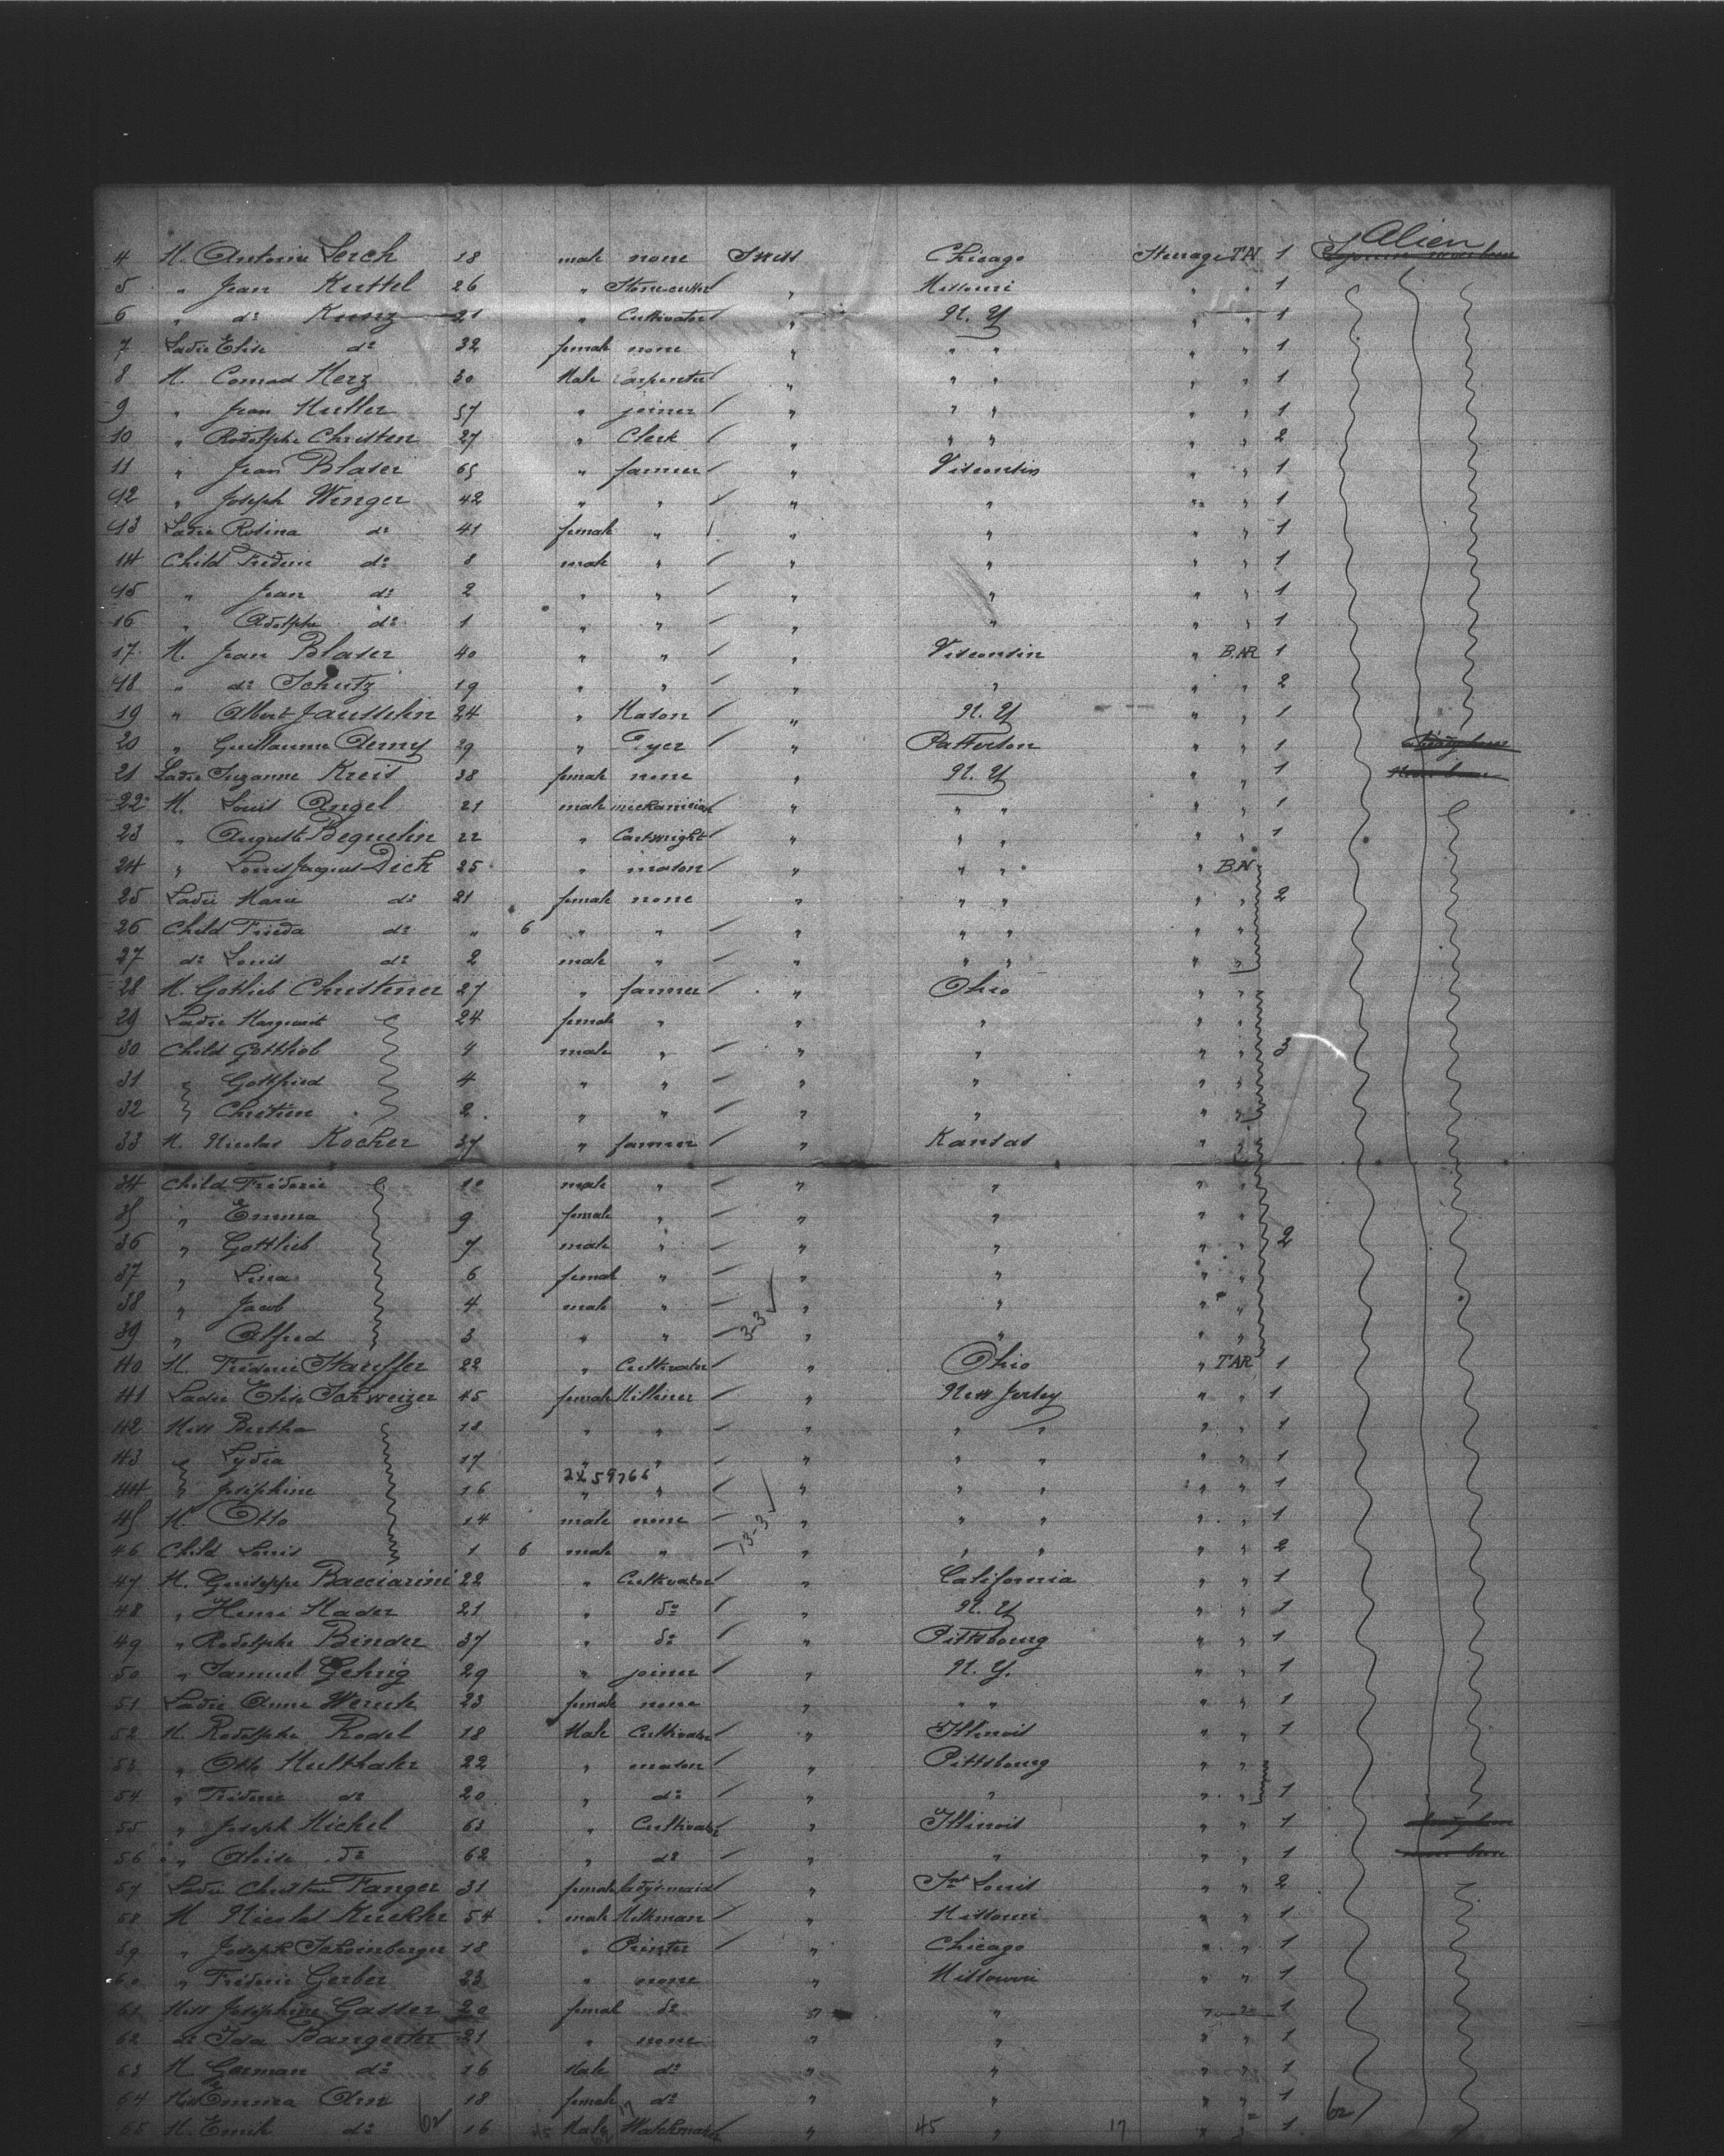 Alien
4 M. Antonin Lerch 18 male none Swiss Chicago Steerage TN 1
5 " Jean Kuttel 26 " Stone-cutter " Missouri " " 1
6 " do Kunz 21 " Cultivator " N. Y " " 1
7 Ladie Elise do 32 female none " " " " " 1
8 M. Conrad Herz 30 Male Carpenter " " " " " 1
9 " Jean Muller 57 " joiner " " " " 1
10 " Rodolphe Christen 27 " Clerk " " " " " 2
11 " Jean Blaser 65 " farmer " Visconsin " " 1
12 " Joseph Winger 42 " " " " " " 1
13 Ladie Rosina do 41 female " " " " " 1
14 Child Frederic do 8 male " " " " " 1
15 " Jean do 2 " " " " " " 1
16 " Adolphe do 1 " " " " " " 1
17 M. Jean Blaser 40 " " " Visconsin " B.AR 1
18 " do Schutz 19 " " " " " " 2
19 " Albert Jausselin 24 " Mason " N. Y " " 1
20 " Guillaume Aemy 29 " Dyer " Patterson " " 1
21 Ladie Suzanne Kreis 38 female none " N. Y " " 1
22 M. Louis Angel 21 male mechanician " " " " " 1
23 " Auguste Beguelin 22 " Cartwright " " " " " 1
24 " Louis Jaques Dick 25 " mason " " " " BN
25 Ladie Marie do 21 female none " " " " " 2
26 Child Frieda do " 6 " " " " " " "
27 do Louis do 2 male " " " " " "
28 M. Gottlieb Christener 27 " farmer " Ohio " "
29 Ladie Marguerit 24 female " " " " "
30 Child Gottlieb 4 male " " " " " 3
31 " Gottfried 4 " " " " " "
32 Chretien 2 " " " " " "
33 M. Nicolas Kocher 37 " farmer " Kansas " "
34 Child Frederic 10 male " " " " "
35 " Emma 9 female " " " " "
36 " Gottlieb 7 male " " " " " 2
37 " Lina 6 female " " " " "
38 " Jacob 4 male " " " " "
39 " Alfred 3 " " 3-3 " " " "
40 M. Frederic Stauffer 22 " Cultivator " Ohio " TAR 1
41 Ladie Elise Schweizer 45 female Milliner " New Jersey " " 1
42 Miss Bertha 18 " " " " " " " 1
43 Lydia 17 " " " " " " " 1
44 Joséphine 16 " " " " " " " 1
45 M. Otto 14 male none " " " " " 1
46 Child Louis 1 6 male " 13-3 " " " " " 2
47 M. Guiseppe Bacciarini 22 " Cultivator " California " " 1
48 " Henri Mader 21 " do " N. Y " " 1
49 " Rodolphe Binder 37 " do " Pittsbourg " " 1
50 " Samuel Gehrig 29 " joiner " N. Y. " " 1
51 Ladie Anna Wenck 23 female none " " " " " 1
52 M. Rodolphe Rodel 18 Male Cultivator " Illinois " " 1
53 " Otto Multhaler 22 " mason " Pittsbourg " "
54 " Frederic do 20 " do " " " " 1
55 " Joseph Michel 63 " Cultivator " Illinois " " 1
56 " Aloise do 62 " do " " " " 1
57 Ladie Christine Fanger 31 female lady's maid " St Louis " " 2
58 M Nicolas Kuckler 54 male Milkman " Missouri " " 1
59 " Joseph Scheinberger 18 " Printer " Chicago " " 1
60 " Frederic Gerber 23 " none " Missouri " " 1
61 Miss Joséphine Gasser 20 female do " " " " 1
62 do Ida Bangerter 21 " none " " " " 1
63 M German do 16 Male do " " " " 1
64 Miss Emma Arn 18 female do " " " " 1
65 M. Emile do 16 Male Watchmaker " 45 " 17 " " 1